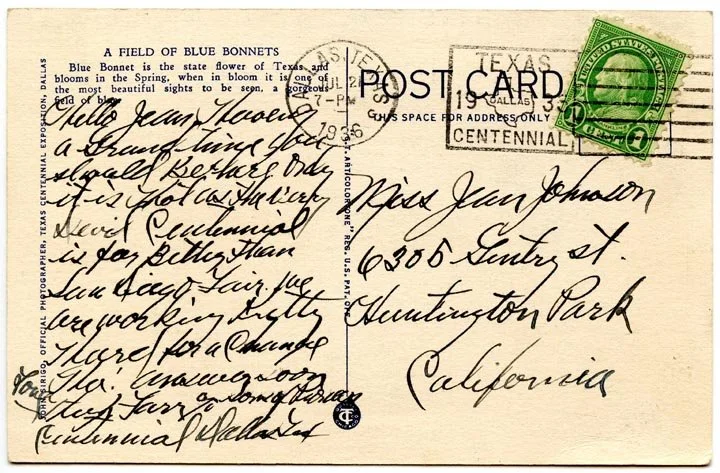 A FIELD OF BLUE BONNETS
Blue Bonnet is the state flower of Texas and
blooms in the Spring, when in bloom it is one of
the most beautiful sights to be seen, a gorgeous
field of blue.
Hello Jean, Having
a time you
should be here. Only
it is hot as the very
Devil Centennial
is far Better than
San Diago Fair. we
are working Pretty
Hard for a Change
Tho! answer soon
Centennial Dallas Tex
JOHN SIRIGO, OFFICIAL PHOTOGRAPHER, TEXAS CENTENNIAL EXPOSITION, DALLAS
"C. T. ART-COLORTONE" REG. U. S. PAT. OFF.
DALLAS, TEXAS
JUL 2
7-PM
1936
POST CARD
THIS SPACE FOR ADDRESS ONLY
TEXAS
19 DALLAS 36
CENTENNIAL
UNITED STATES POSTAGE
1 CENT 1
Miss Jean Johnson
6305 Gentry st.
Huntington Park
California